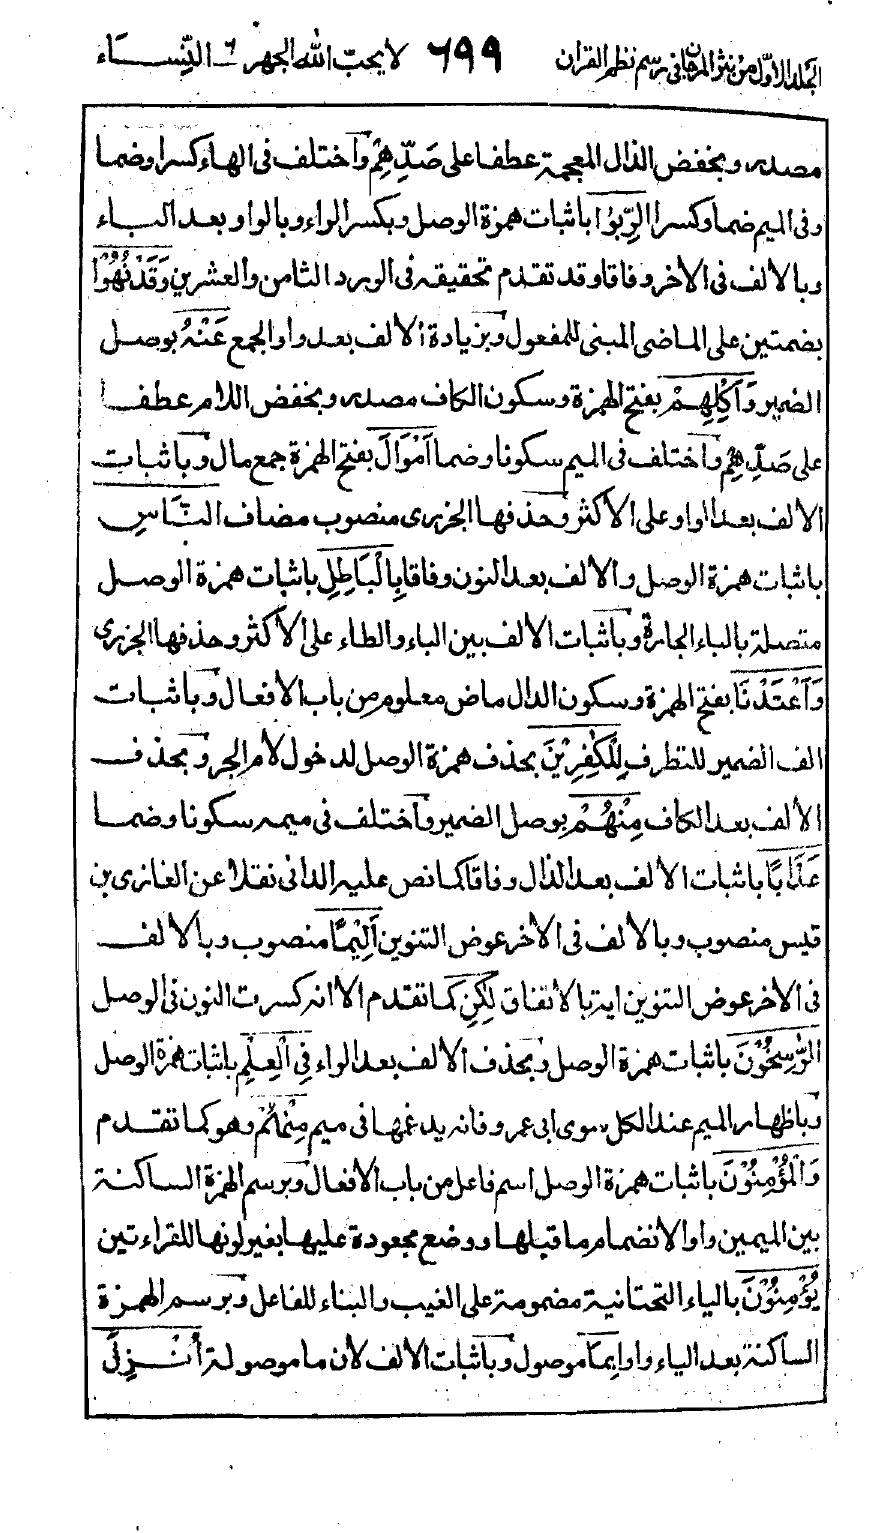 الجلد الاول من نثر المرجان فى رسم نظم القران ٦٩٩ لا يحبّ الله الجهر ٦ ـ النّســاء
مصدر و بخفض الذال المعجمة عطفا على صَدِّهِمْ وَاختلف فى الهاء كسرا و ضما
و فى الميم ضما و كسرا الرِّبٰوا باثبات همزة الوصل و بكسر الراء و بالواو بعد البــاء
و بالالف فى الاخر وفاقا و قد تقدم تحقيقه فى الورد الثامن والعشرين وَقَدْ نُهُوْا
بضمتين على الماضى المبنى للمفعول وَبزيادة الالف بعد واو الجمع عَنْهُ بوصل
الضمير وَاَكْلِهِمْ بفتح الهمزة و سكون الكاف مصدر و بخفض اللام عطفــا
على صَدِّهِمْ وَاختلف فى الميم سكونا و ضما اَمْوَالَ بفتح الهمزة جمع مال وَباثبات
الالف بعد الواو على الاكثر وَحذفها الجزرى منصوب مضاف النَّاسِ
باثبات همزة الوصل و الالف بعد النون وفاقا بِالْبَاطِلِ باثبات همزة الوصــل
متصلة بالباء الجارة وَباثبات الالف بين الباء والطاء على الاكثر وحذفها الجزرى
وَاَعْتَدْنَا بفتح الهمزة و سكون الدال ماض معلوم من باب الافعال وَباثبــات
الف الضمير للتطرف لِلْكٰفِرِيْنَ بحذف همزة الوصل لدخول لام الجر وَبحذف
الالف بعد الكاف مِنْهُمْ بوصل الضمير وَاختلف فى ميمه سكونا و ضمــا
عَذَابًا باثبات الالف بعد الذال وفاقا كما نص عليه الدانى نقلا عن الغازى بن
قيس منصوب و بالالف فى الاخر عوض التنوين اَلِيْمًا منصوب و بالالف
فى الاخر عوض التنوين اية بالاتفاق لٰكِنِ كما تقدم الا انه كسرت النون فى الوصل
الرّٰسِخُوْنَ باثبات همزة الوصل وَبحذف الالف بعد الراء فِى الْعِلْمِ باثبات همزة الوصل
وَباظهار الميم عند الكل سوى ابى عمرو فانه يدغمها فى ميم مِنْهُمْ وهو كما تقدم
وَالْمُؤْمِنُوْنَ باثبات همزة الوصل اسم فاعل من باب الافعال وَبرسم الهمزة الساكنة
بين الميمين واوا لانضمام ما قبلها و وضع مجعودة عليها بغير لونها للقراءتين
يُؤْمِنُوْنَ بالياء التحتانية مضمومة على الغيب والبناء للفاعل وَبرسم الهمزة
الساكنة بعد الياء واوا بِمَا موصول وَباثبات الالف لان ما موصولة اُنْــزِلَ